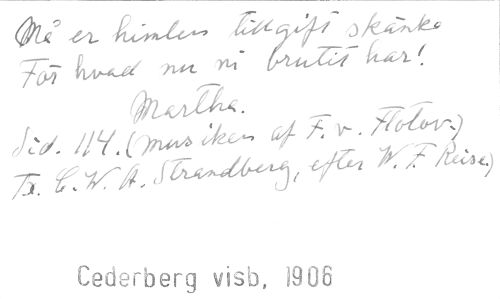 Må er himlen tillgift skänka
För hvad nu ni brutit har!
Martha.
Sid. 114. (musiken af F. v. Flotov.)
Tx. C. W. A. Strandberg, efter W. F. Reise.)
Cederberg visb, 1906